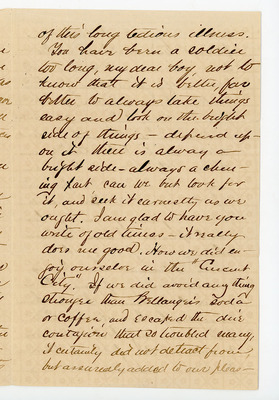 of this long tedious illness.
You have been a soldier
too long, my dear boy, not to
know that it is better, far
better to always take things
easy and look on the bright
side of things – depend up-
on it there is alway a
bright side – always a cheer-
ing part can we but look for
it, and seek it earnestly as we
ought. I am glad to have you
write of old times – it really
does me good. How we did en-
joy ourselves in the "Crescent
City. If we did avoid anything
stronger than Bellangers Soda
or Coffee, and escaped the dire
contagion that so troubled many,
it certainly did not detract from,
but assuredly added to our pleas-